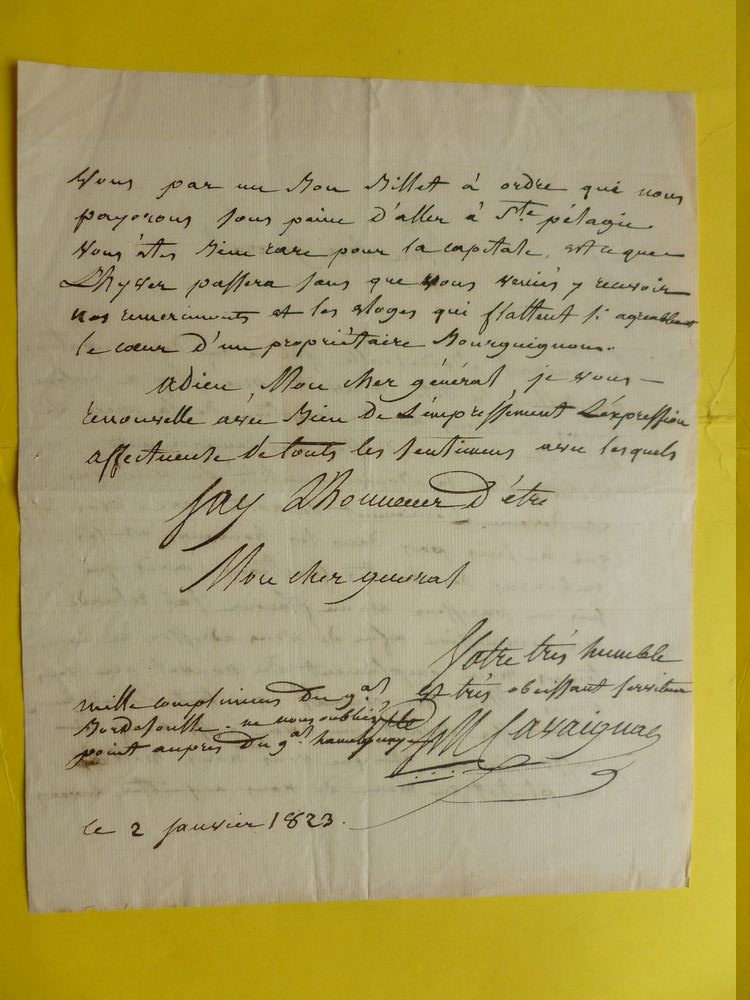 Vous par un Bon Billet à ordre que nous
payerons sous peine d'aller à Ste pélagie
vous êtes Bien rare pour la capitale, est ce que
L'hyver passera sans que vous veniés y recevoir
nos remerciments et les eloges qui flattent si agreablemt
le cœur d'un propriétaire Bourguignon.
adieu, Mon cher général, je vous
renouvelle avec Bien de L'empressement L'expression
affectueuse de touts les sentimens avec lesquels
J'ay L'honneur d'être
Mon cher general
Votre très humble
et très obeissant serviteur
Cavaignac
mille complimens du gal
Bordesoulle. ne nous oubliez
point aupres du gal
le 2 janvier 1823.